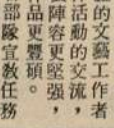 的文藝工作者
活動的交流，
陣容更堅强，
作品更豐碩。
部隊宣教任務